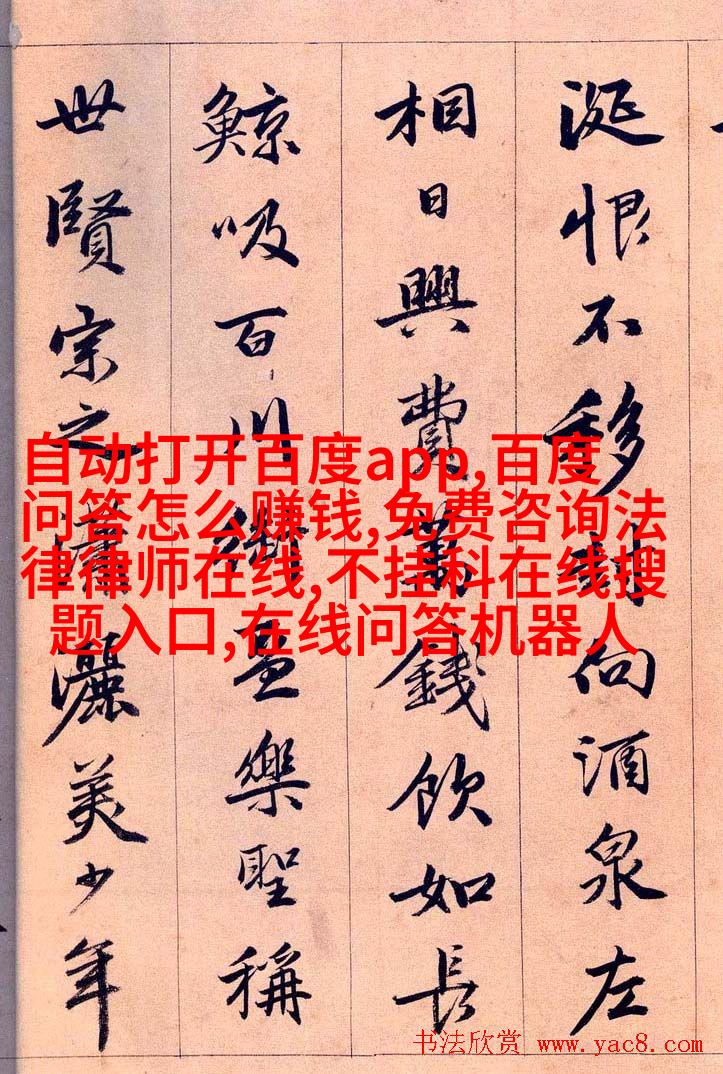 涎恨不移封向酒泉左
相日興費萬錢飲如長
鯨吸百川銜盃樂聖稱
世賢宗之瀟灑美少年
自动打开百度app,百度
问答怎么赚钱,免费咨询法
律律师在线,不挂科在线搜
题入口,在线问答机器人
书法欣赏 www.yac8.com